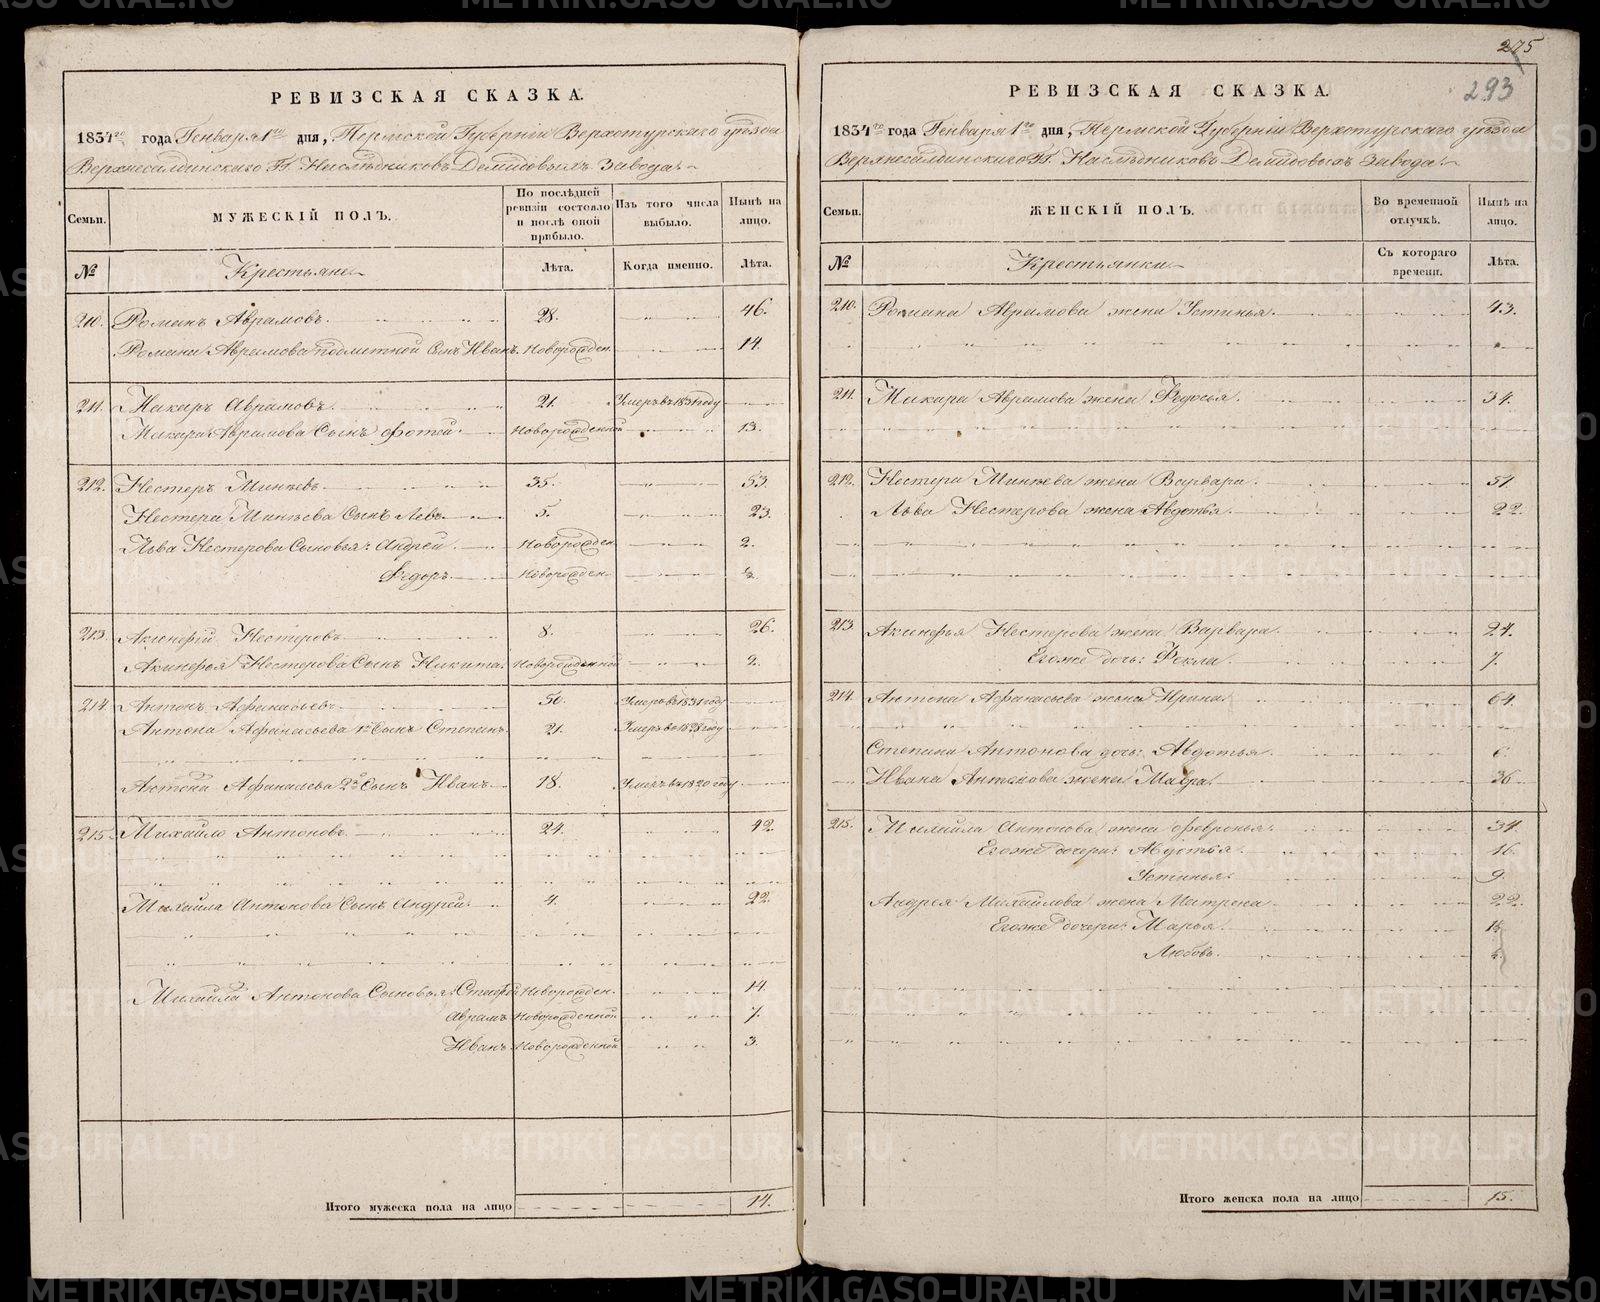 275
293
РЕВИЗСКАЯ СКАЗКА.
1834го года Генваря 1го дня, Пермской Губерніи Верхотурскаго уѣзда
Верхнесалдинскаго Гг. Наслѣдниковъ Демидовыхъ Завода.
Семьи.
МУЖЕСКІЙ ПОЛЪ.
По послѣдней ревизіи состояло и послѣ оной прибыло.
Изъ того числа выбыло.
Нынѣ на лицо.
№
Крестьяне
Лѣта.
Когда именно.
Лѣта.
210. Романъ Аврамовъ. 28. 46.
Романа Аврамова подметной Сынъ Иванъ. Новорожден. 14.
211. Макаръ Аврамовъ. 21. Умеръ въ 1831 году
Макара Аврамова Сынъ Фотей. Новорожденной 13.
212. Нестеръ Минѣевъ 35. 53.
Нестера Минѣева Сынъ Левъ 5. 23.
Льва Нестерова Сыновья: Андрей Новорожден. 2.
Федоръ Новорожден. ½.
213. Акинфій Нестеровъ 8. 26.
Акинфья Нестерова Сынъ Никита. Новорожденной 2.
214. Антонъ Афанасьевъ 50. Умеръ въ 1831 году
Антона Афанасьева 1й Сынъ Степанъ. 21. Умеръ въ 1828 году
Антона Афанасьева 2й Сынъ Иванъ 18. Умеръ въ 1820 году
215. Михайло Антоновъ 24. 42.
Михайла Антонова Сынъ Андрей. 4. 22.
Михайла Антонова Сыновья: Новорожден. 14.
Аврамъ Новорожденной 7.
Иванъ Новорожденной 3.
Итого мужеска пола на лицо 14.
РЕВИЗСКАЯ СКАЗКА.
1834го года Генваря 1го дня, Пермской Губерніи Верхотурскаго уѣзда
Верхнесалдинскаго Гг. Наслѣдниковъ Демидовыхъ Завода.
Семьи.
ЖЕНСКІЙ ПОЛЪ.
Во временной отлучкѣ.
Нынѣ на лицо.
№
Крестьянки
Съ котораго времени.
Лѣта.
210. Романа Аврамова жена Устинья. 43.
211. Макара Аврамова жена Федосья. 34.
212. Нестера Минѣева жена Варвара. 51.
Льва Нестерова жена Авдотья 22.
213. Акинфья Нестерова жена Варвара. 24.
Егоже дочь: Фекла. 7.
214. Антона Афанасьева жена Ирина. 64.
Степана Антонова дочь: Авдотья. 6.
Ивана Антонова жена Мавра. 36.
215. Михайла Антонова жена Февронья. 34.
Егоже дочери: Авдотья 16.
Устинья. 9.
Андрея Михайлова жена Матрена 22.
Егоже дочери: Марья.
Любовь.
Итого женска пола на лицо 15.
METRIKI.GASO-URAL.RU